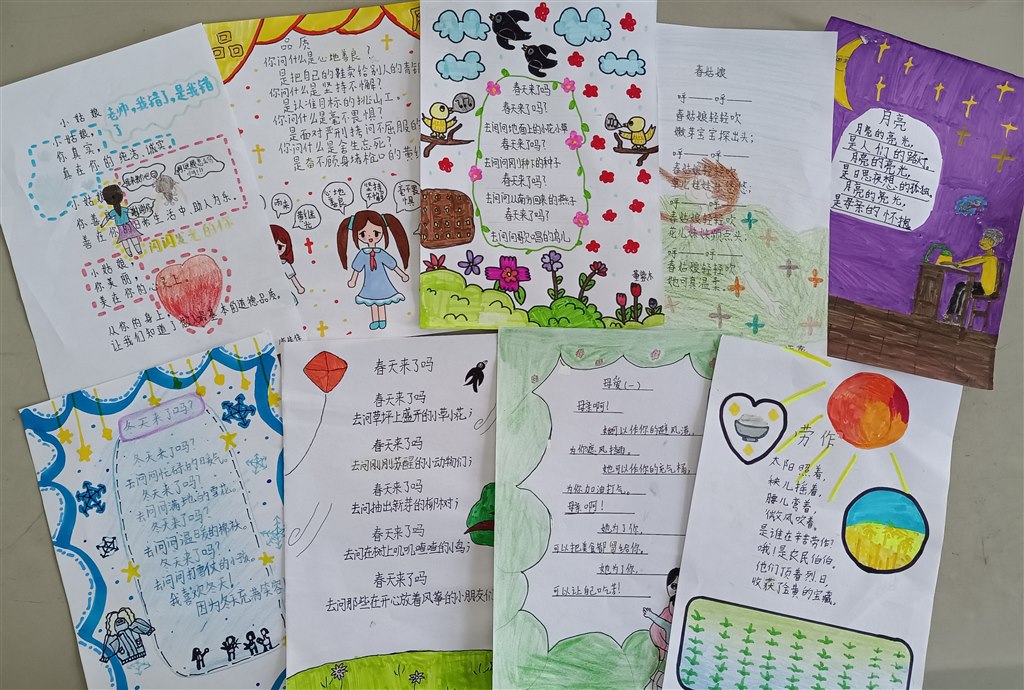 小姑娘
小姑娘,
你真实,
真在你的纯洁、诚实
老师,我错了,是我错
了
小姑娘
你善
善在你的日常生活中,助人为乐.
小姑娘
你美丽,
美在你的心
从你的身上
让我们知道了
本的道德品质.
品质
你问什么是心地善良?
是把自己的鞋卖给别人的青
你问什么是坚持不懈?
是认准目标的挑山工.
你问什么是毫不畏惧?
是面对严刑拷问不屈服的
你问什么是舍生忘死?
是奋不顾身堵枪口的黄继
心地善良
坚持不懈
春天来了吗
春天来了吗?
去问问地面上的小花小草
春天来了吗?
去问问刚刚种下的种子
春天来了吗?
去问问从南方回来的燕子
春天来了吗?
去问问歌唱的鸟儿
春姑娘
呼——呼——
春姑娘轻轻吹
嫩芽宝宝探出头;
呼——呼——
春姑娘轻轻吹
花儿
呼——呼——
春姑娘轻轻吹
她可真温柔.
月亮
月亮的亮光,
是人们的路灯.
月亮的亮光,
是日思夜想的孤独.
月亮的亮光,
是母亲的怀抱
冬天来了吗?
冬天来了吗?
去问问忙碌的
冬天来了吗?
去问问满地的雪花.
冬天来了吗?
去问问温暖的棉袄.
冬天来了吗?
去问问打雪仗的小孩.
我喜欢冬天!
因为冬天充满笑容
春天来了吗
春天来了吗
去问草坪上盛开的小草小花;
春天来了吗
去问刚刚苏醒的小动物们;
春天来了吗
去问抽出新芽的柳树;
春天来了吗
去问在树上叽叽喳喳的小鸟;
春天来了吗
去问那些在开心放着风筝的小朋友们
母爱(一)
母亲啊!
她可以作你的避风港,
为你遮风挡雨.
她可以作你的充气桶,
为你加油打气.
母亲啊!
她为了你,
可以把美食都留给你.
她为了你,
可以让自己吃苦!
劳作
太阳照着,
秧儿摇着,
腰儿弯着,
微风吹着.
是谁在辛劳作?
哦!是农民伯伯.
他们顶着烈日,
收获了金黄的宝藏.